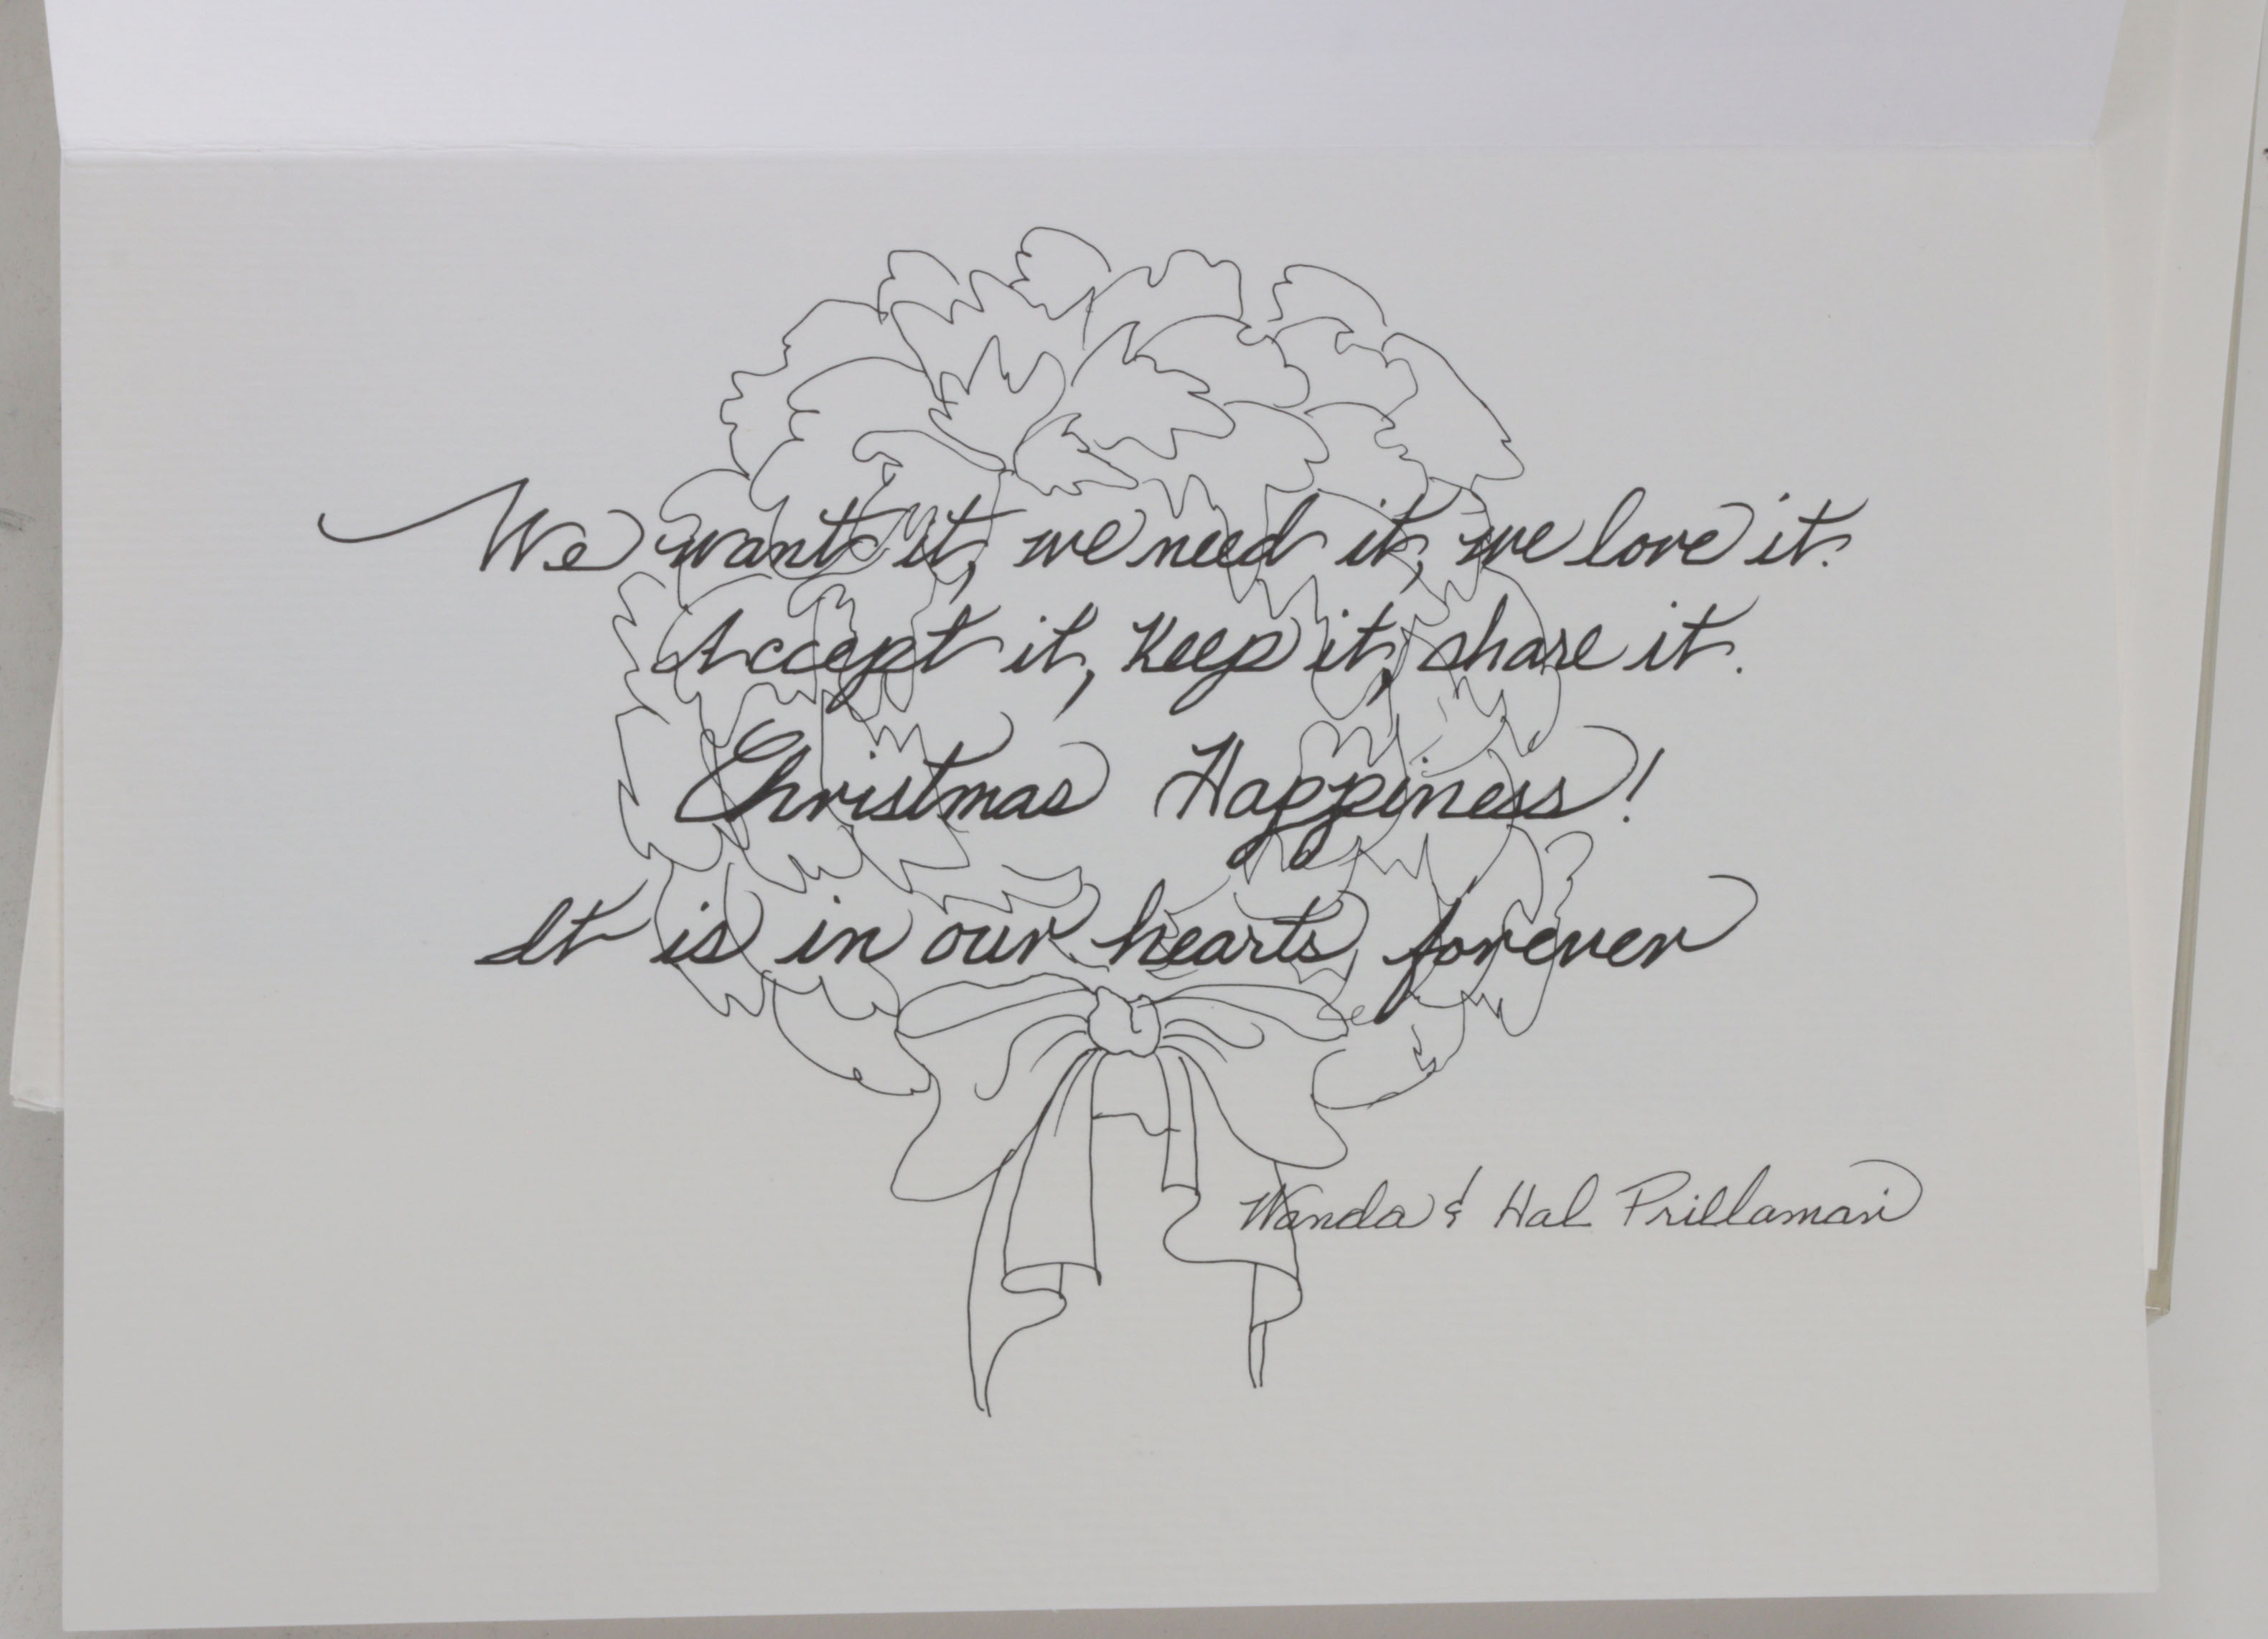 We want it, we need it, we love it.
Accept it, Keep it, share it.
Christmas Happiness!
It is in our hearts forever
Wanda & Hal Prillaman